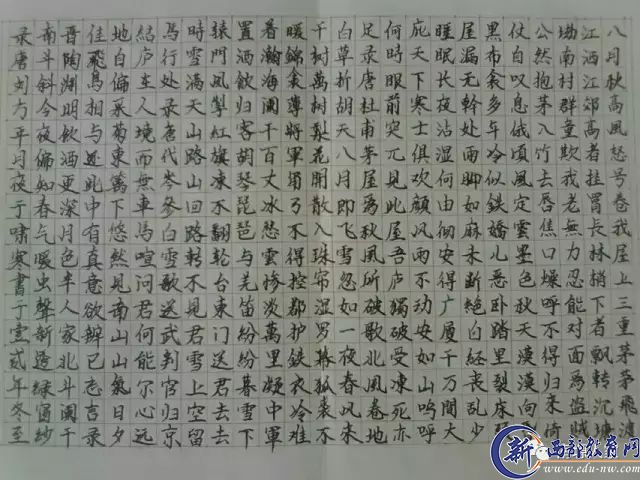 八月秋高風怒号卷我屋上三重茅茅飛渡
江洒江郊高者挂罥長林梢下者飄轉沉塘
坳南村群童欺我老無力忍能对面為盗賊
公然抱茅入竹去唇焦口燥呼不得归来倚
仗自叹息俄頃風定雲墨色秋天漠漠向
黑布衾多年冷似鐵嬌儿惡卧踏里裂床
屋漏無幹处雨脚如麻未断絕白經丧乱少
睡眠長夜沾湿何由得安得广厦千万間大
庇天下寒士俱欢顏風雨不动安如山呜呼
何時眼前突兀見此屋吾庐獨破受凍死亦
足录唐杜甫茅屋為秋風所破歌北風卷地
白草折胡天八月即飛雪忽如一夜春风来
千树萬树梨花開散入珠帘湿罗幕狐裘不
暖錦衾薄将軍角弓不得控都護鉄衣冷难
着瀚海阑干百丈冰愁雲惨淡萬里凝中軍
置酒飲归客胡琴琵琶与羌笛紛紛暮雪下
辕門風掣紅旗凍不翻轮台東门送君去去
時雪满天山路山回路轉不見君雪上空留
馬行处录唐代岑參白雪歌送武判官归京
结庐在人境而無車馬喧問君何能尔心远
地自偏采菊東篱下悠然見南山山氣日夕
佳飛鳥相与还此中有真意欲辨已忘言录
晋陶渊明飲酒更深月色半人家北斗阑干
南斗斜今夜偏知春气暖虫聲新透绿窗紗
录唐刘方平月夜于嘯寒書于贰年冬至
新西部教育网
www.edu-nw.com